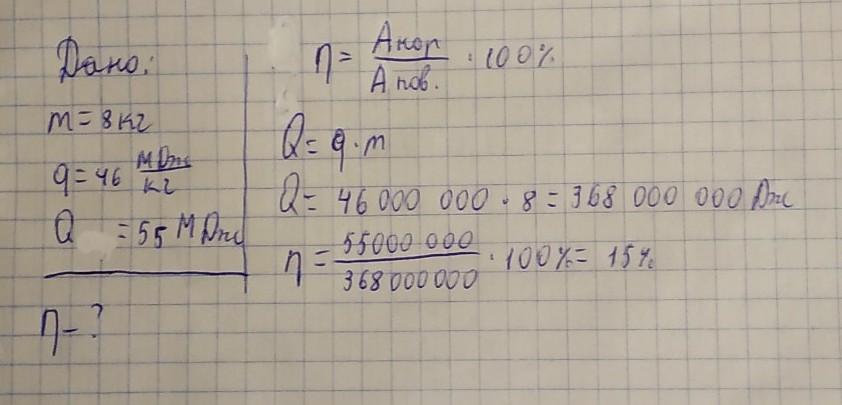 Дано:
m = 8 кг
q = 46 МДж/кг
Q = 55 МДж
η - ?
η = Aкор / Aпов. · 100%
Q = q · m
Q = 46 000 000 · 8 = 368 000 000 Дж
η = 55000 000 / 368 000 000 · 100% = 15%